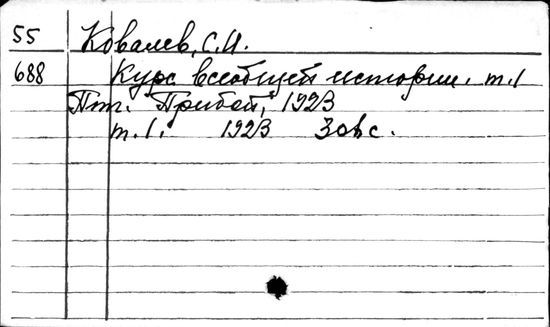 55 Ковалев, С.И.
688 Курс всеобщей истории. т.1
Птг. Прибой, 1923
т.1. 1923